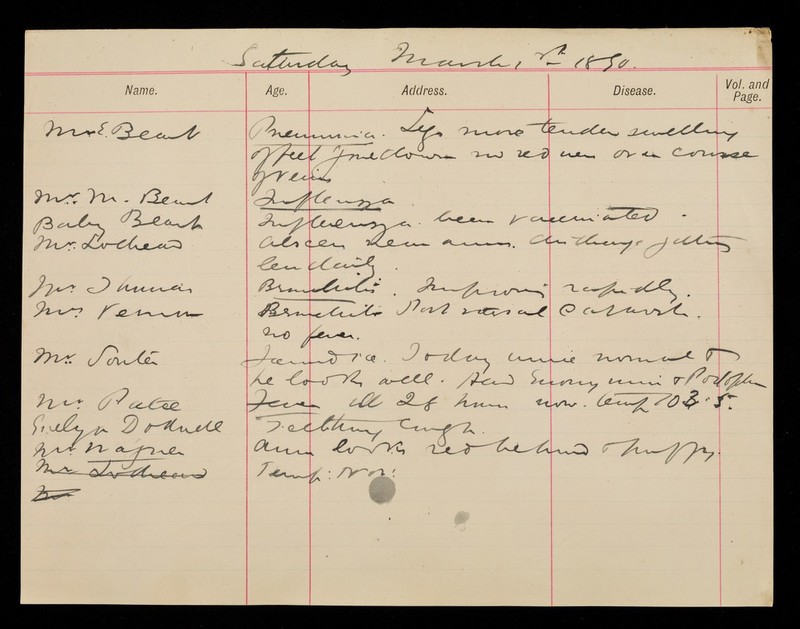 Saturday March 1st 1890.
Name. Age. Address. Disease. Vol. and Page.
Mrs E. Beart Pneumonia. Legs more tender swelling
of feet gone down no redness over course
of vein
Mr. M. Beart Influenza.
Baby Beart Influenza. been vaccinated.
Mr. Lodhead abscess near anus. discharge getting
less daily.
Mrs Bronchitis. Improving rapidly.
Mrs Vernon Bronchitis Post nasal Catarrh.
no fever.
Mr. Soutér Jaundice. Today urine normal &
he looks well. Had Euonymin & Podophn
Mr. Patee Fever ill 28 hours now. temp 103.5.
Evelyn Dodwell Teething Cough.
Mr Wagner Arm looks red behind & puffy.
Mr Lodhead Temp: Nor:
Mr